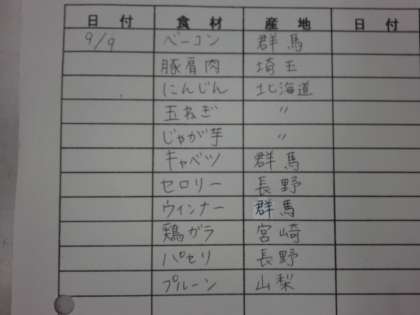 日付 食材 産地 日付
9/9 ベーコン 群馬
豚肩肉 埼玉
にんじん 北海道
玉ねぎ 〃
じゃが芋 〃
キャベツ 群馬
セロリー 長野
ウィンナー 群馬
鶏ガラ 宮崎
パセリ 長野
プルーン 山梨